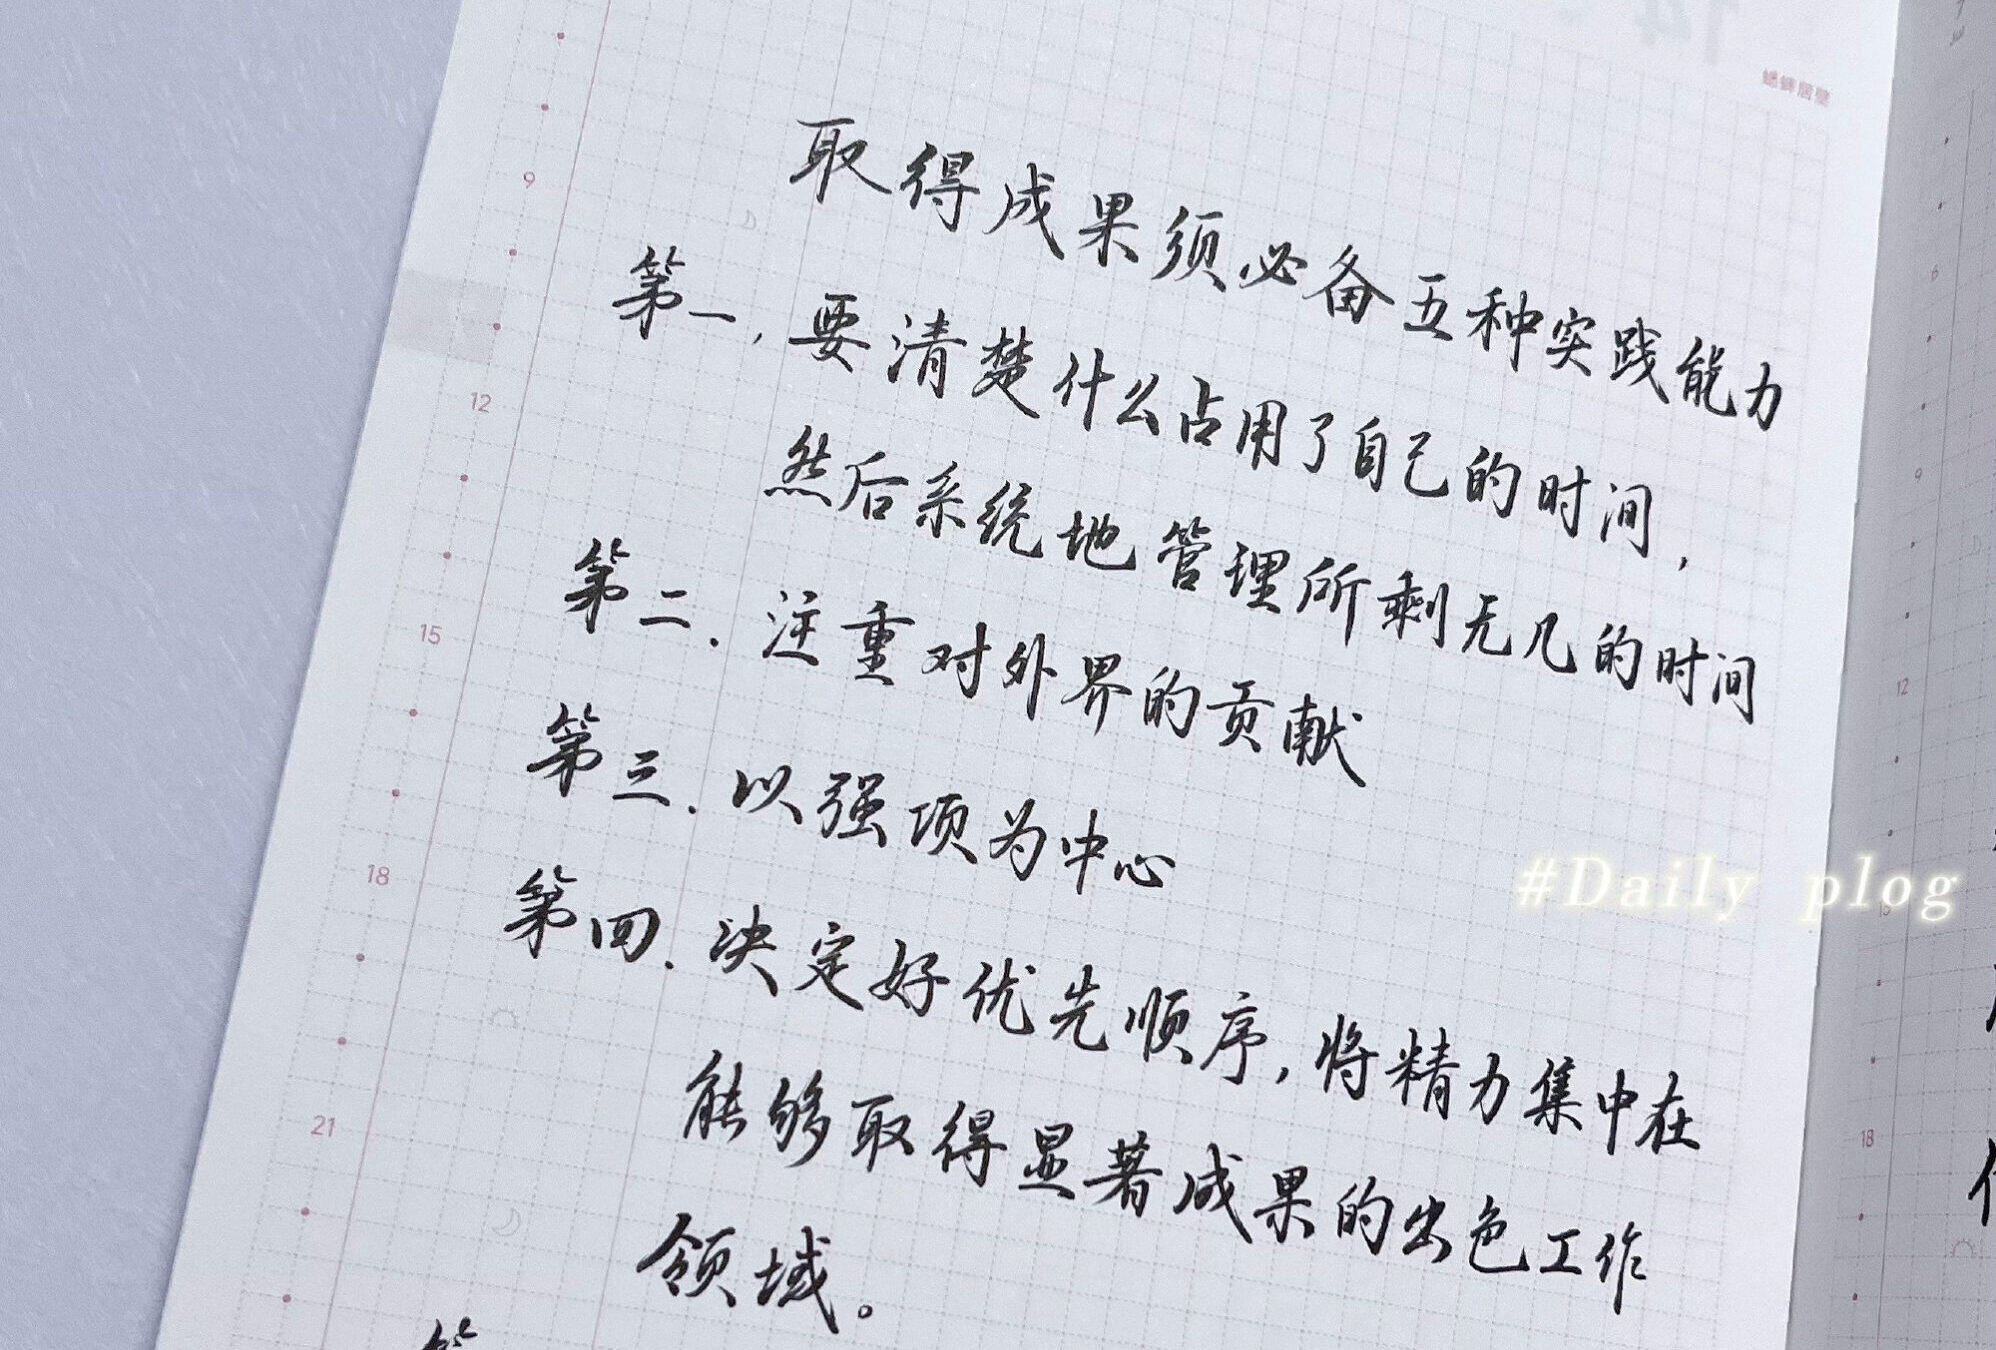 取得成果须必备五种实践能力
第一,要清楚什么占用了自己的时间,
然后系统地管理所剩无几的时间
第二.注重对外界的贡献
第三.以强项为中心
第四.决定好优先顺序,将精力集中在
能够取得显著成果的出色工作
领域。
第
#Daily plog
9
12
15
18
21
6
9
12
15
18